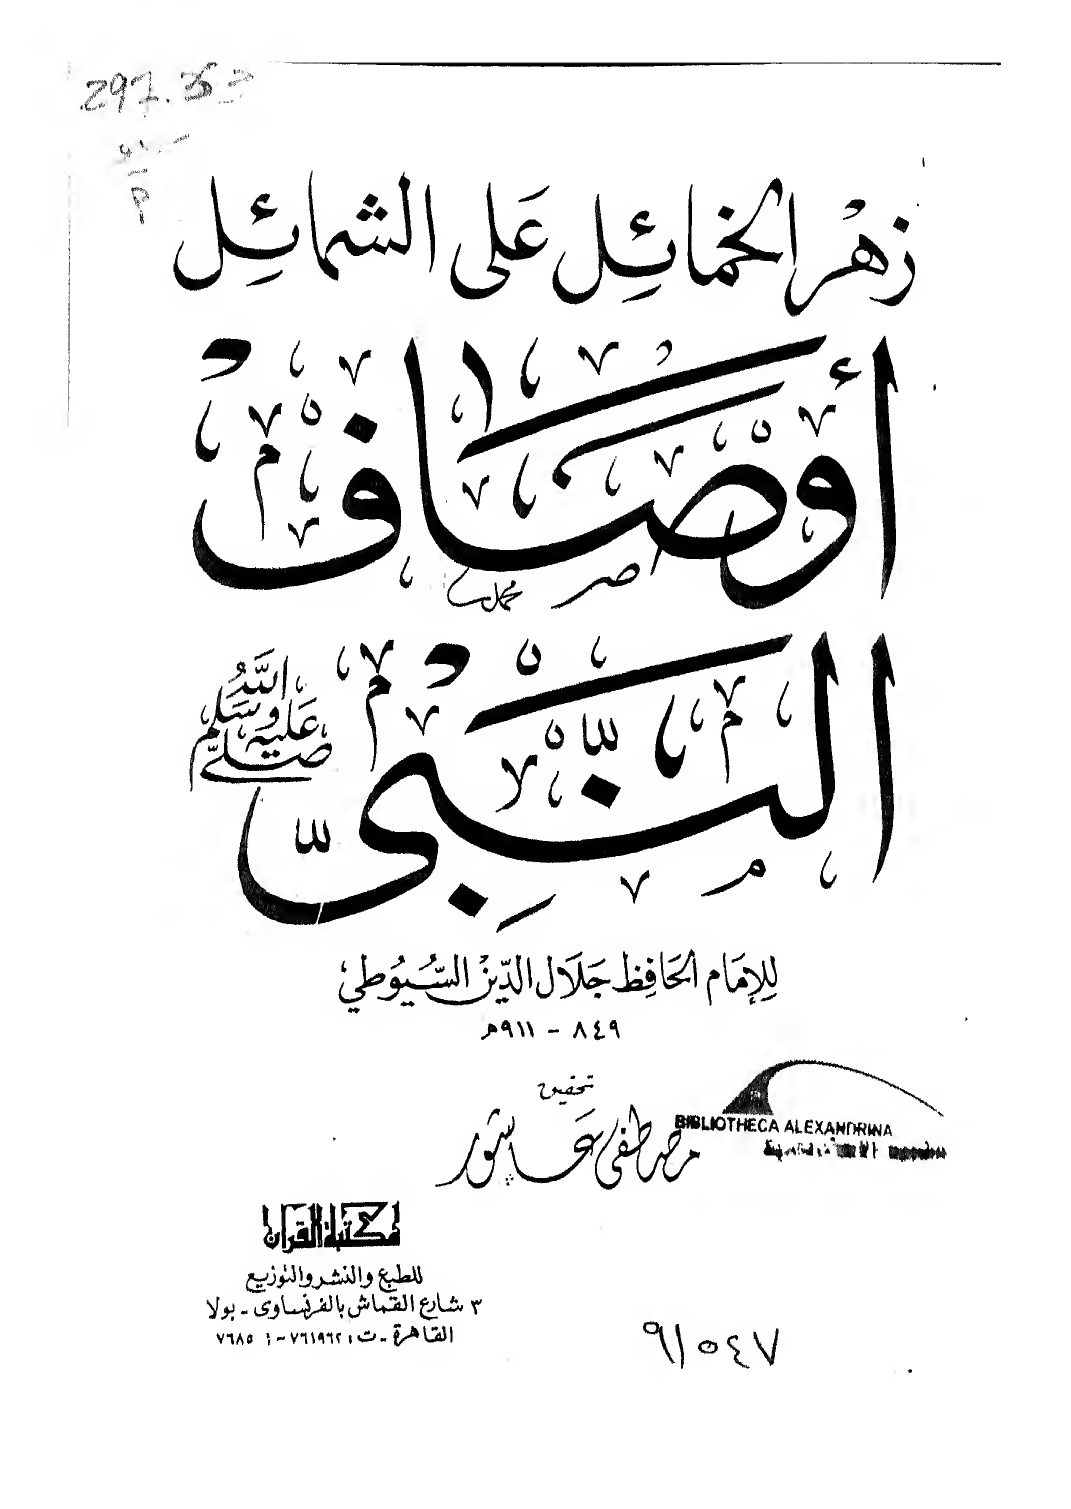 297.
زهر الخمائل على الشمائل
أَوْصَافُ
النَّبِيِّ
صلى الله عليه وسلم
للإِمَام الحَافِظ جَلَال الدِّيْن السُّيُوطي
٨٤٩ - ٩١١هـ
تحقيق
مصطفى عَاشور
BIBLIOTHECA ALEXANDRINA
مكتبة القرآن
للطبع والنشر والتوزيع
٣ شارع القماش بالفرنساوى - بولا
القاهرة - ت: ٧٦١٩٦٢ - ٧٦٨٥
٩١٥٤٧